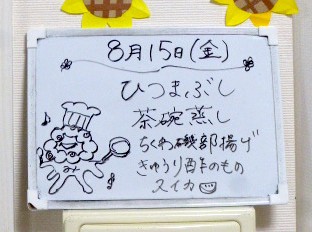 8月15日(金)
ひつまぶし
茶碗蒸し
ちくわ磯部揚げ
きゅうり酢のもの
スイカ
み